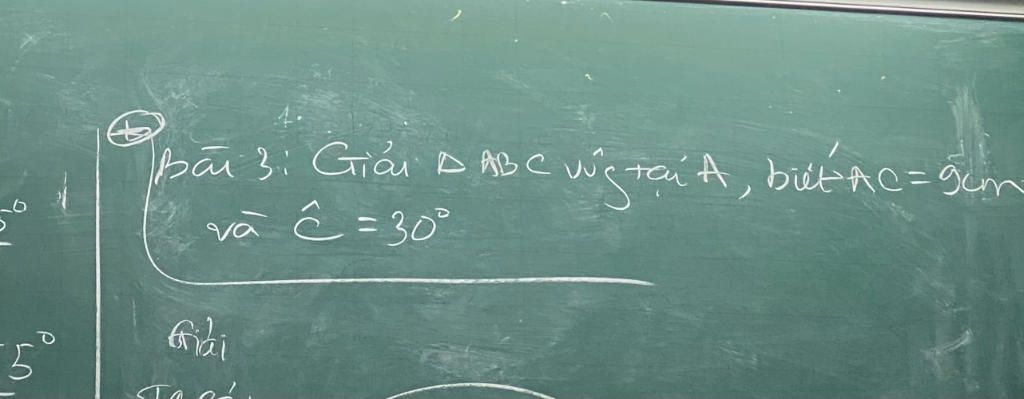 Bài 3: Giải Δ ABC vg tại A, biết AC = 9cm
và Ĉ = 30°
Giải
5°
Ta có